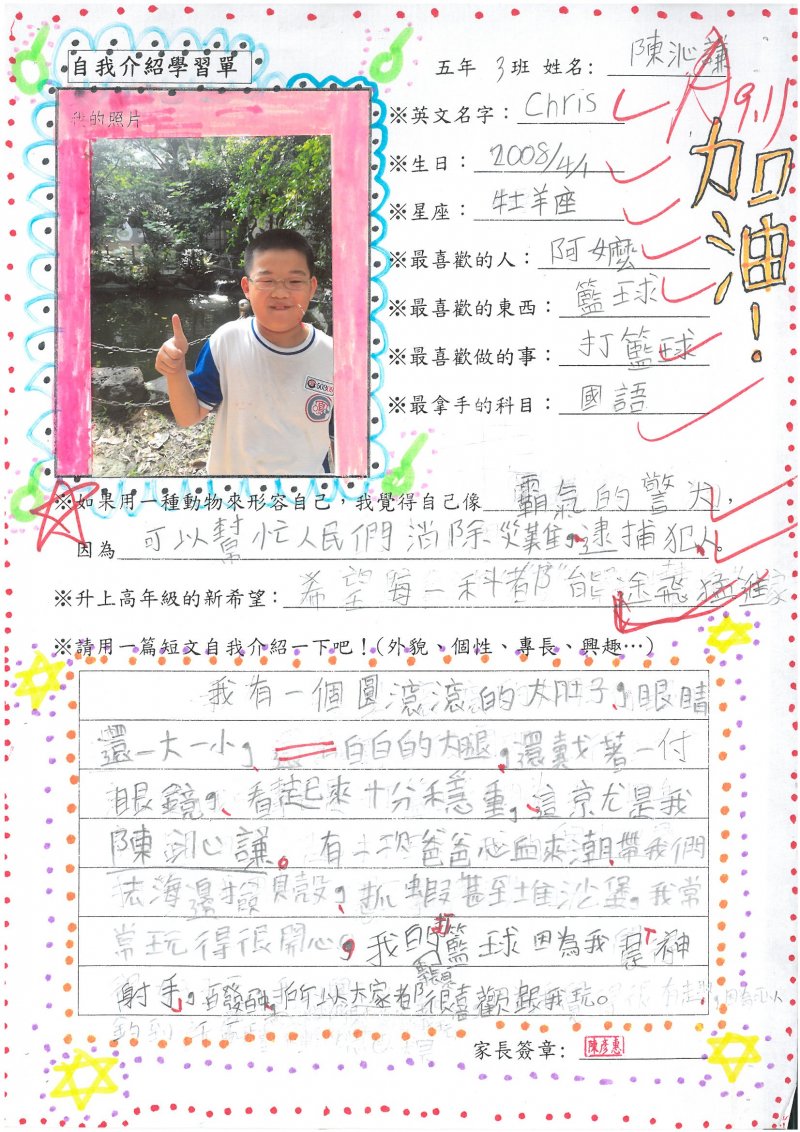 自我介紹學習單
五年 3班 姓名: 陳沁謙
A
9.11
我的照片
※英文名字: Chris
加油!
※生日: 2008/4/1
※星座: 牡羊座
※最喜歡的人: 阿嬤
※最喜歡的東西: 籃球
※最喜歡做的事: 打籃球
※最拿手的科目: 國語
※如果用一種動物來形容自己,我覺得自己像 霸氣的警犬,
因為 可以幫忙人民們消除災難,逮捕犯人。
※升上高年級的新希望: 希望每一科都"能"突飛猛"進
※請用一篇短文自我介紹一下吧!(外貌、個性、專長、興趣…)
我有一個圓滾滾的大肚子,眼睛
還一大一小,白白的大腿,還戴著一付
眼鏡,看起來十分穩重,這就是我
陳沁謙。有一次爸爸心血來潮,帶我們
去海邊撿貝殼,抓蝦甚至堆沙堡,我常
常玩得很開心,我的專長是打籃球因為我是神
射手,百發百中,所以大家都很喜歡跟我玩。
家長簽章:
陳彥惠